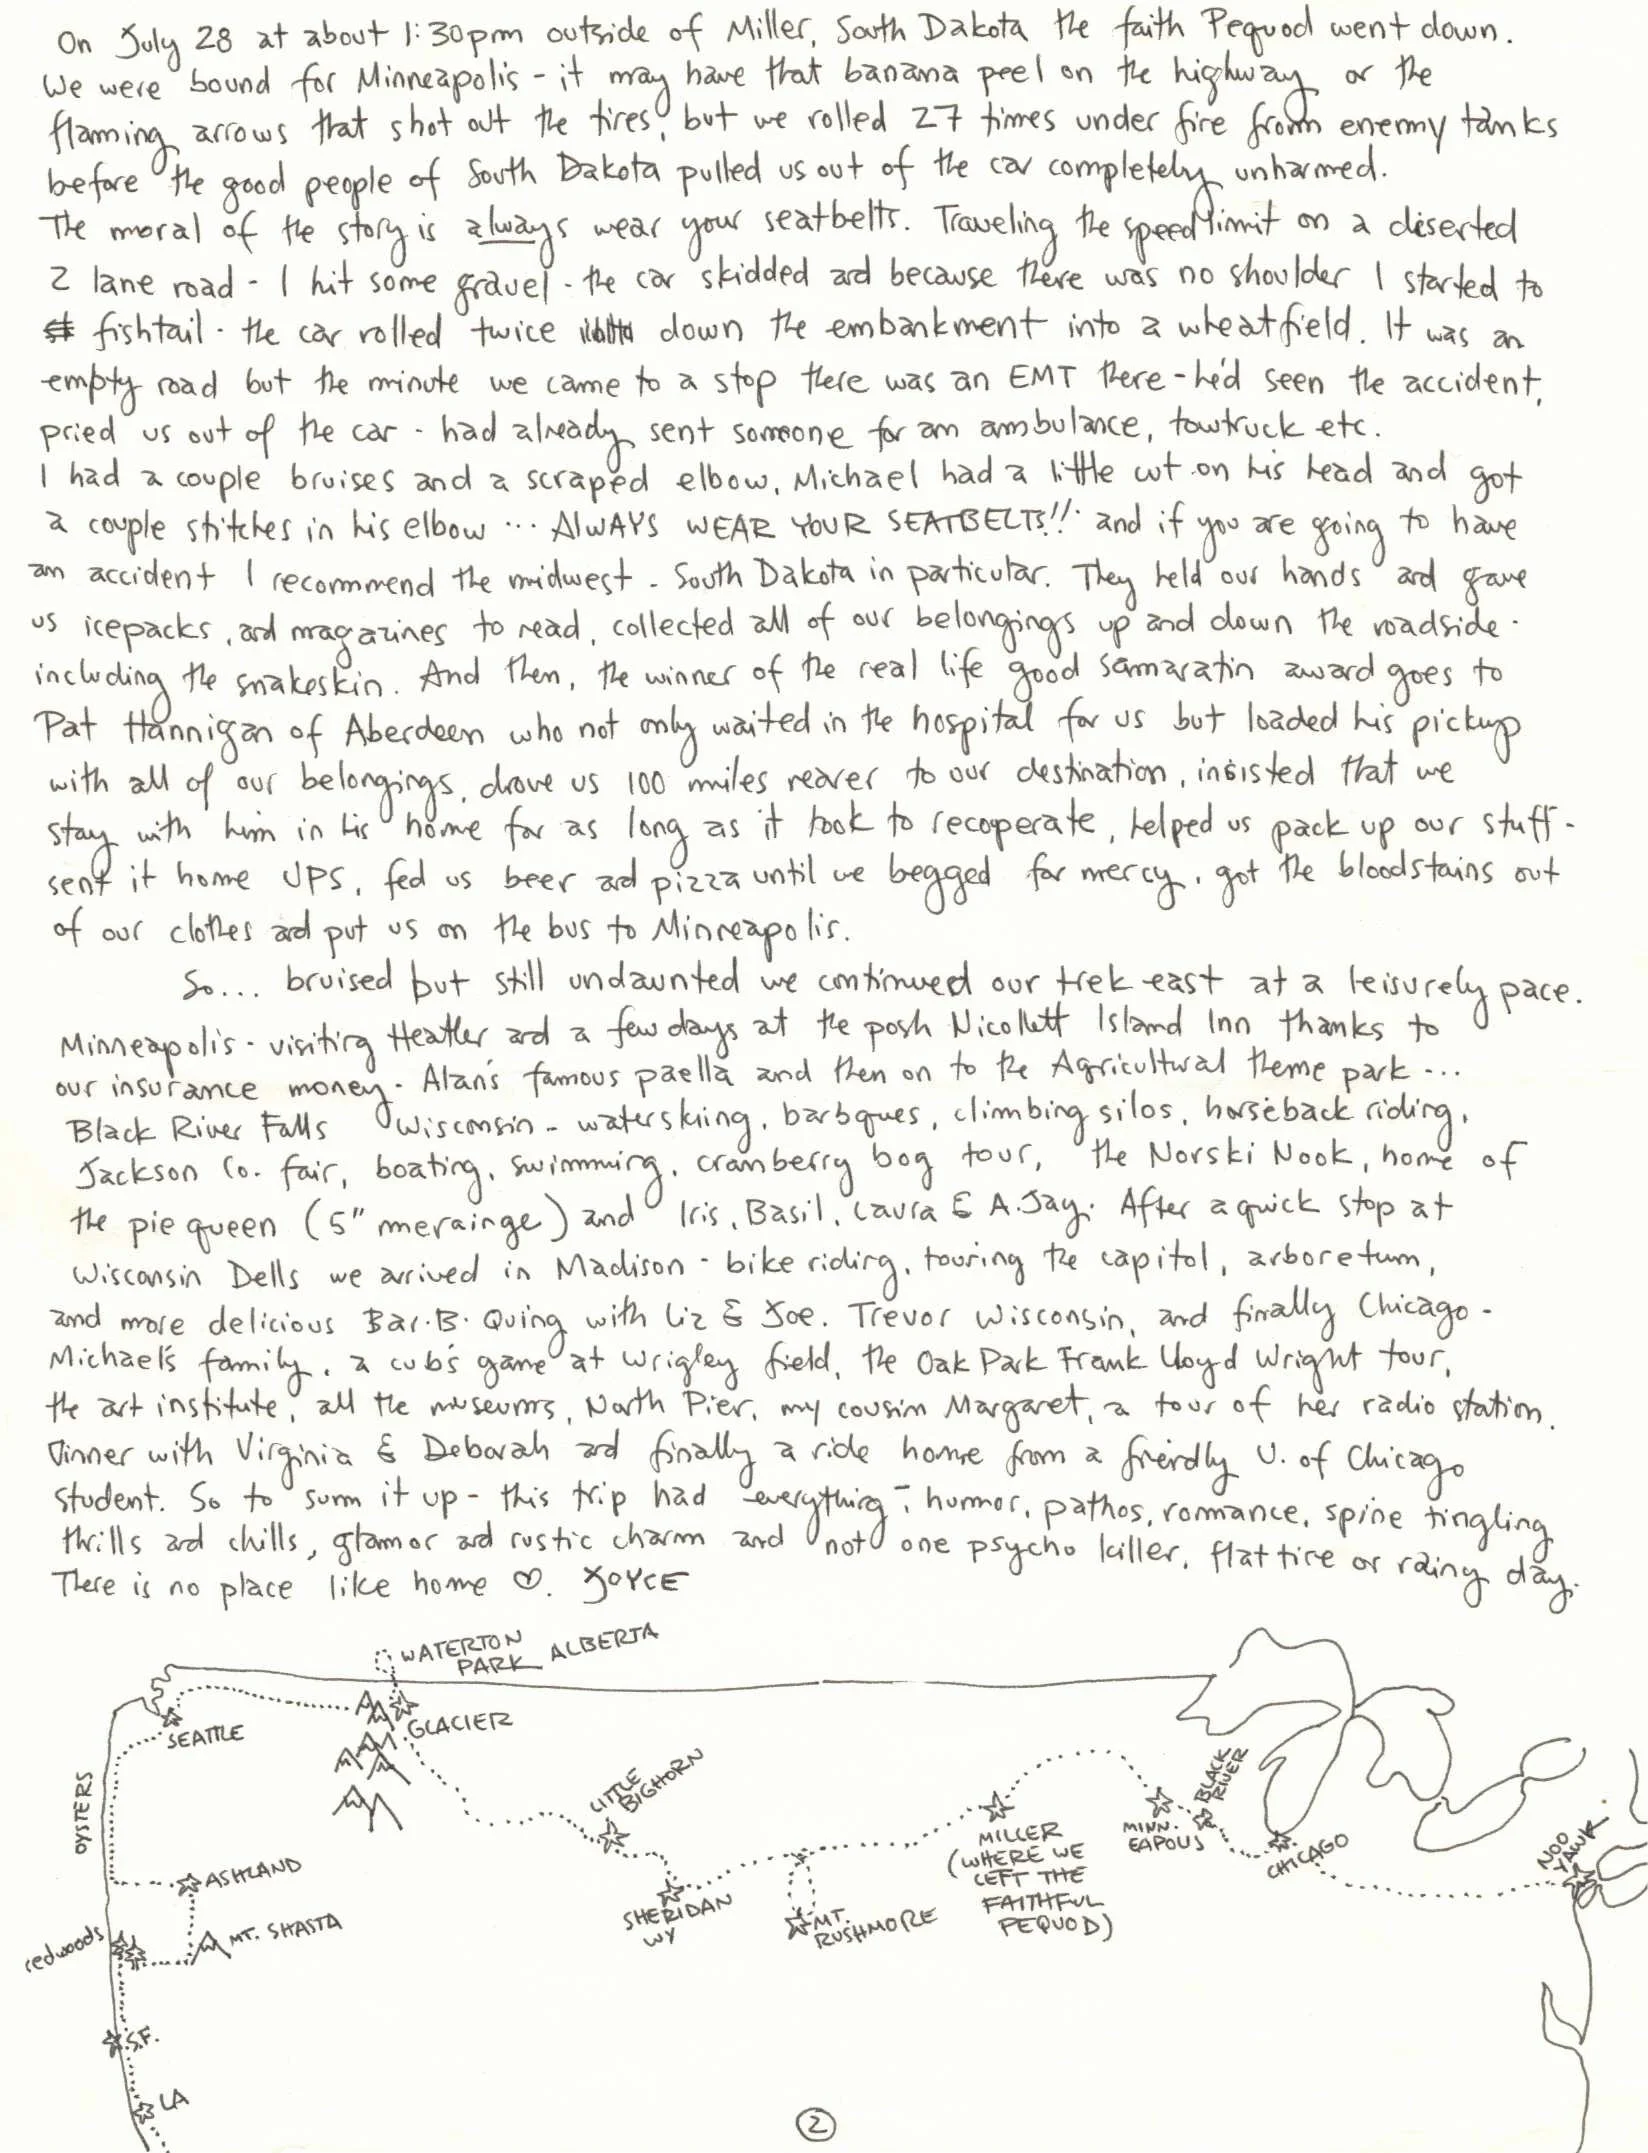 On July 28 at about 1:30pm outside of Miller, South Dakota the faith Pequod went down.
We were bound for Minneapolis - it may have that banana peel on the highway or the
flaming arrows that shot out the tires, but we rolled 27 times under fire from enemy tanks
before the good people of South Dakota pulled us out of the car completely unharmed.
The moral of the story is always wear your seatbelts. Traveling the speed limit on a diserted
2 lane road - I hit some gravel - the car skidded and because there was no shoulder I started to
fishtail - the car rolled twice down the embankment into a wheatfield. It was an
empty road but the minute we came to a stop there was an EMT there - he'd seen the accident,
pried us out of the car - had already sent someone for an ambulance, towtruck etc.
I had a couple bruises and a scraped elbow, Michael had a little cut on his head and got
a couple stitches in his elbow ... ALWAYS WEAR YOUR SEATBELTS!! and if you are going to have
an accident I recommend the midwest - South Dakota in particular. They held our hands and gave
us icepacks, and magazines to read, collected all of our belongings up and down the roadside -
including the snakeskin. And then, the winner of the real life good samaratin award goes to
Pat Hannigan of Aberdeen who not only waited in the hospital for us but loaded his pickup
with all of our belongings, drove us 100 miles nearer to our destination, insisted that we
stay with him in his home for as long as it took to recoperate, helped us pack up our stuff -
sent it home UPS, fed us beer and pizza until we begged for mercy, got the bloodstains out
of our clothes and put us on the bus to Minneapolis.
So... bruised but still undaunted we continued our trek east at a leisurely pace.
Minneapolis - visiting Heather and a few days at the posh Nicollett Island Inn thanks to
our insurance money - Alan's famous paella and then on to the Agricultural theme park ...
Black River Falls Wisconsin - waterskiing, barbques, climbing silos, horseback riding,
Jackson Co. fair, boating, swimming, cranberry bog tour, the Norski Nook, home of
the pie queen (5" merainge) and Iris, Basil, Laura & A.Jay. After a quick stop at
Wisconsin Dells we arrived in Madison - bike riding, touring the capitol, arboretum,
and more delicious Bar.B.Quing with Liz & Joe. Trevor Wisconsin, and finally Chicago -
Michael's family, a cub's game at Wrigley field, the Oak Park Frank Lloyd Wright tour,
the art institute, all the museums, North Pier, my cousin Margaret, a tour of her radio station.
Dinner with Virginia & Deborah and finally a ride home from a friendly U. of Chicago
student. So to sum it up - this trip had everything - humor, pathos, romance, spine tingling
thrills and chills, glamor and rustic charm and not one psycho killer, flat tire or rainy day.
There is no place like home ♡. JOYCE
WATERTON
PARK ALBERTA
SEATTLE
GLACIER
OYSTERS
LITTLE
BIGHORN
BLACK
RIVER
MILLER
(WHERE WE
LEFT THE
FAITHFUL
PEQUOD)
MINN.
EAPOLIS
CHICAGO
NOO
YAWK
ASHLAND
SHERIDAN
WY
MT.
RUSHMORE
redwoods
MT. SHASTA
S.F.
LA
2